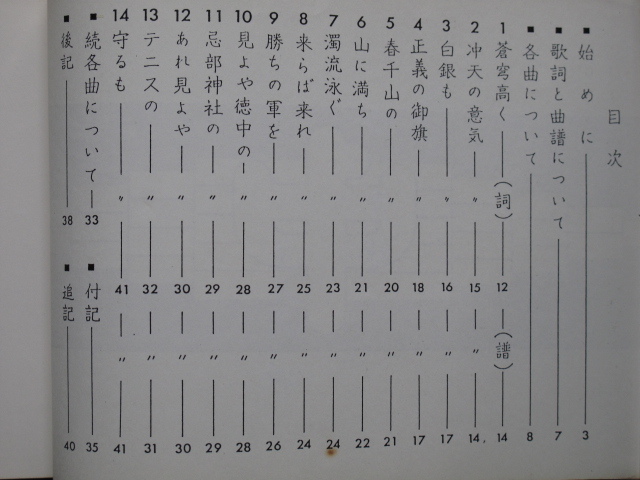 目次
■ 始めに 3
■ 歌詞と曲譜について 7
■ 各曲について 8
1 蒼穹高く (詞) 12 (譜) 14
2 冲天の意気 〃 15 〃 14
3 白銀も 〃 16 〃 17
4 正義の御旗 〃 18 〃 17
5 春千山の 〃 20 〃 21
6 山に満ち 〃 21 〃 22
7 濁流泳ぐ 〃 23 〃 24
8 来らば来れ 〃 25 〃 24
9 勝ちの軍を 〃 27 〃 26
10 見よや徳中の 〃 28 〃 28
11 忌部神社の 〃 29 〃 29
12 あれ見よや 〃 30 〃 30
13 テニスの 〃 32 〃 31
14 守るも 〃 41 〃 41
■ 続各曲について 33
■ 付記 35
■ 後記 38
■ 追記 40